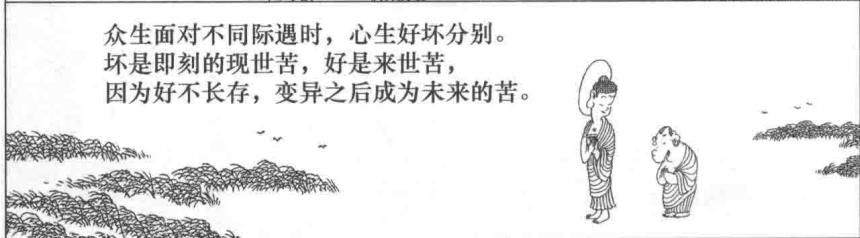 众生面对不同际遇时，心生好坏分别。
坏是即刻的现世苦，好是来世苦，
因为好不长存，变异之后成为未来的苦。